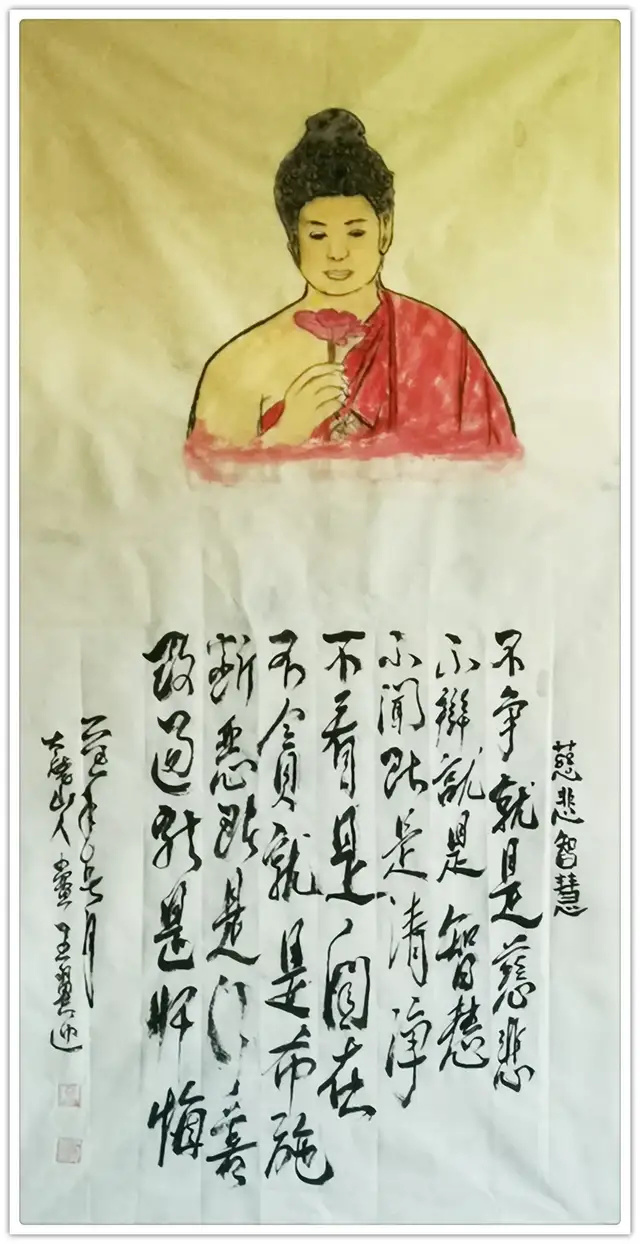 慈悲智慧
不争就是慈悲
不辩就是智慧
不闻就是清淨
不看是自在
不贪就是布施
断恶就是行善
改過就是忏悔
年 月
山人 畫 王